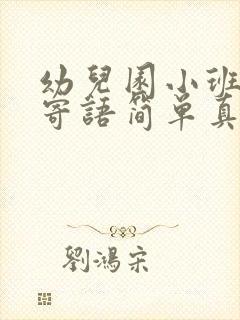 幼兒園小班
寄語簡單真
劉鴻宋